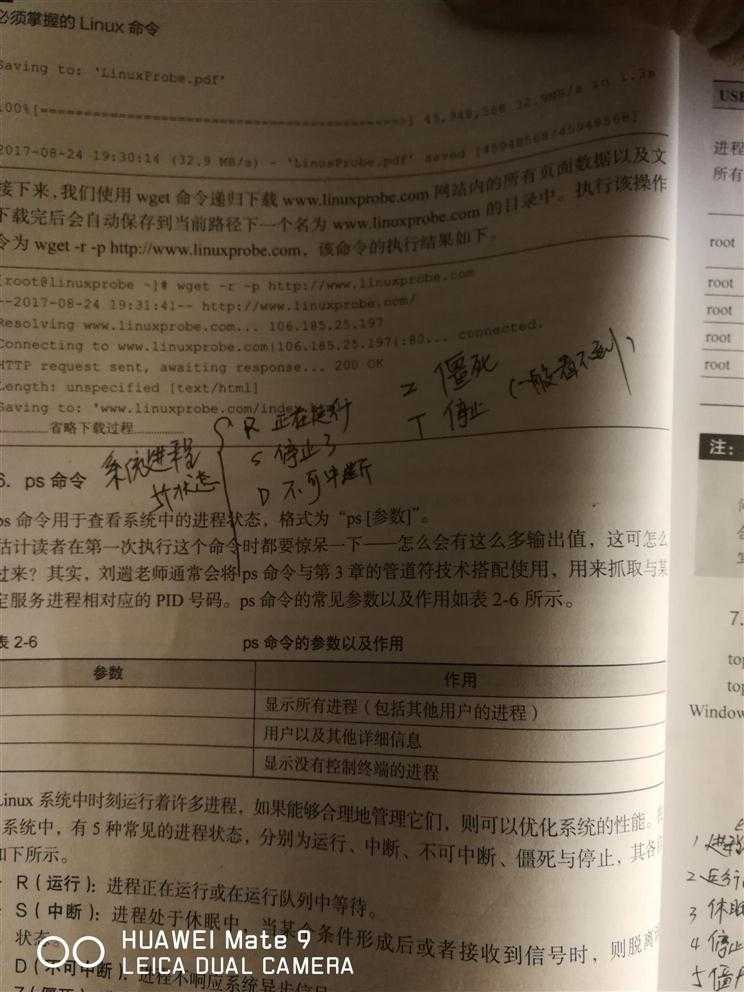 必须掌握的 Linux 命令
Saving to: 'LinuxProbe.pdf'
100%[======================================>] 45,948,568 32.9MB/s in 1.3s
2017-08-24 19:30:14 (32.9 MB/s) - 'LinuxProbe.pdf' saved [45948568/45948568]
接下来,我们使用 wget 命令递归下载 www.linuxprobe.com 网站内的所有页面数据以及文
下载完后会自动保存到当前路径下一个名为 www.linuxprobe.com 的目录中。执行该操作
令为 wget -r -p http://www.linuxprobe.com，该命令的执行结果如下。
[root@linuxprobe ~]# wget -r -p http://www.linuxprobe.com
--2017-08-24 19:31:41-- http://www.linuxprobe.com/
Resolving www.linuxprobe.com... 106.185.25.197
Connecting to www.linuxprobe.com|106.185.25.197|:80... connected.
HTTP request sent, awaiting response... 200 OK
Length: unspecified [text/html]
Saving to: 'www.linuxprobe.com/index
………省略下载过程………
Z 僵死
T 停止 (一般看不到)
系统进程
状态
R 正在运行
S 停止了
D 不可中断
6. ps 命令
ps 命令用于查看系统中的进程状态，格式为“ps [参数]”。
估计读者在第一次执行这个命令时都要惊呆一下——怎么会有这么多输出值，这可怎么
过来？其实，刘遄老师通常会将 ps 命令与第 3 章的管道符技术搭配使用，用来抓取与某
定服务进程相对应的 PID 号码。ps 命令的常见参数以及作用如表 2-6 所示。
表 2-6 ps 命令的参数以及作用
参数 作用
显示所有进程（包括其他用户的进程）
用户以及其他详细信息
显示没有控制终端的进程
Linux 系统中时刻运行着许多进程，如果能够合理地管理它们，则可以优化系统的性能。
系统中，有 5 种常见的进程状态，分别为运行、中断、不可中断、僵死与停止，其各
如下所示。
R（运行）：进程正在运行或在运行队列中等待。
S（中断）：进程处于休眠中，当某个条件形成后或者接收到信号时，则脱离
状态。
D（不可中断）：进程不响应系统异步信号
Z（僵死）
HUAWEI Mate 9
LEICA DUAL CAMERA
USE
进程
所有
root
root
root
root
root
注：
7.
top
top
Window
1
2 运行
3 休眠
4 停止
5 僵